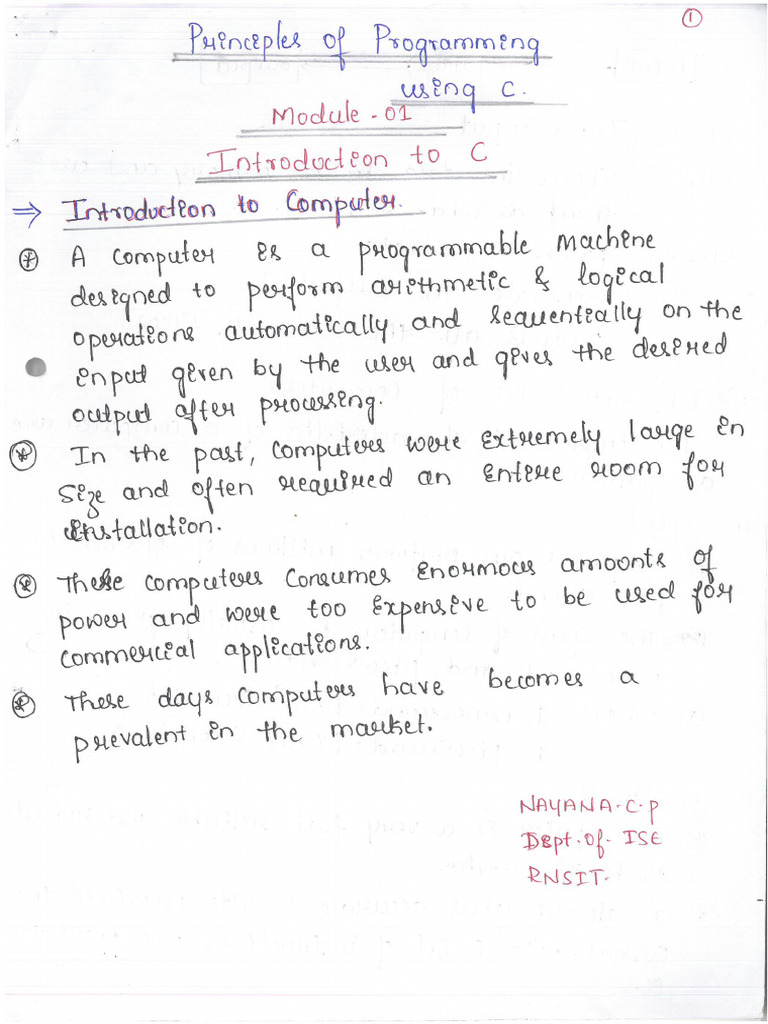 1
Principles of Programming
using C.
Module - 01
Introduction to C
⇒ Introduction to Computer.
* A computer is a programmable machine
designed to perform arithmetic & logical
operations automatically and sequentially on the
input given by the user and gives the desired
output after processing.
* In the past, computers were extremely large in
size and often required an entire room for
installation.
* These computers consumes enormous amounts of
power and were too expensive to be used for
commercial applications.
* These days computers have becomes a
prevalent in the market.
NAYANA.C.P
Dept.of. ISE
RNSIT.